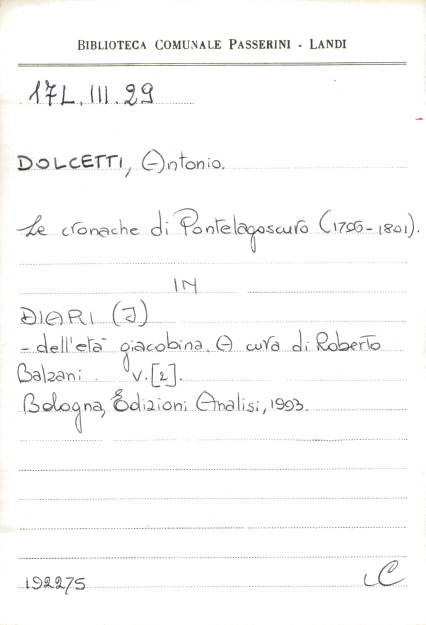 BIBLIOTECA COMUNALE PASSERINI - LANDI
17L.III.29
DOLCETTI, Antonio.
Le cronache di Pontelagoscuro (1796-1801).
IN
DIARI (I)
- dell'età giacobina. A cura di Roberto
Balzani. v.[2].
Bologna, Edizioni Analisi, 1993.
192275